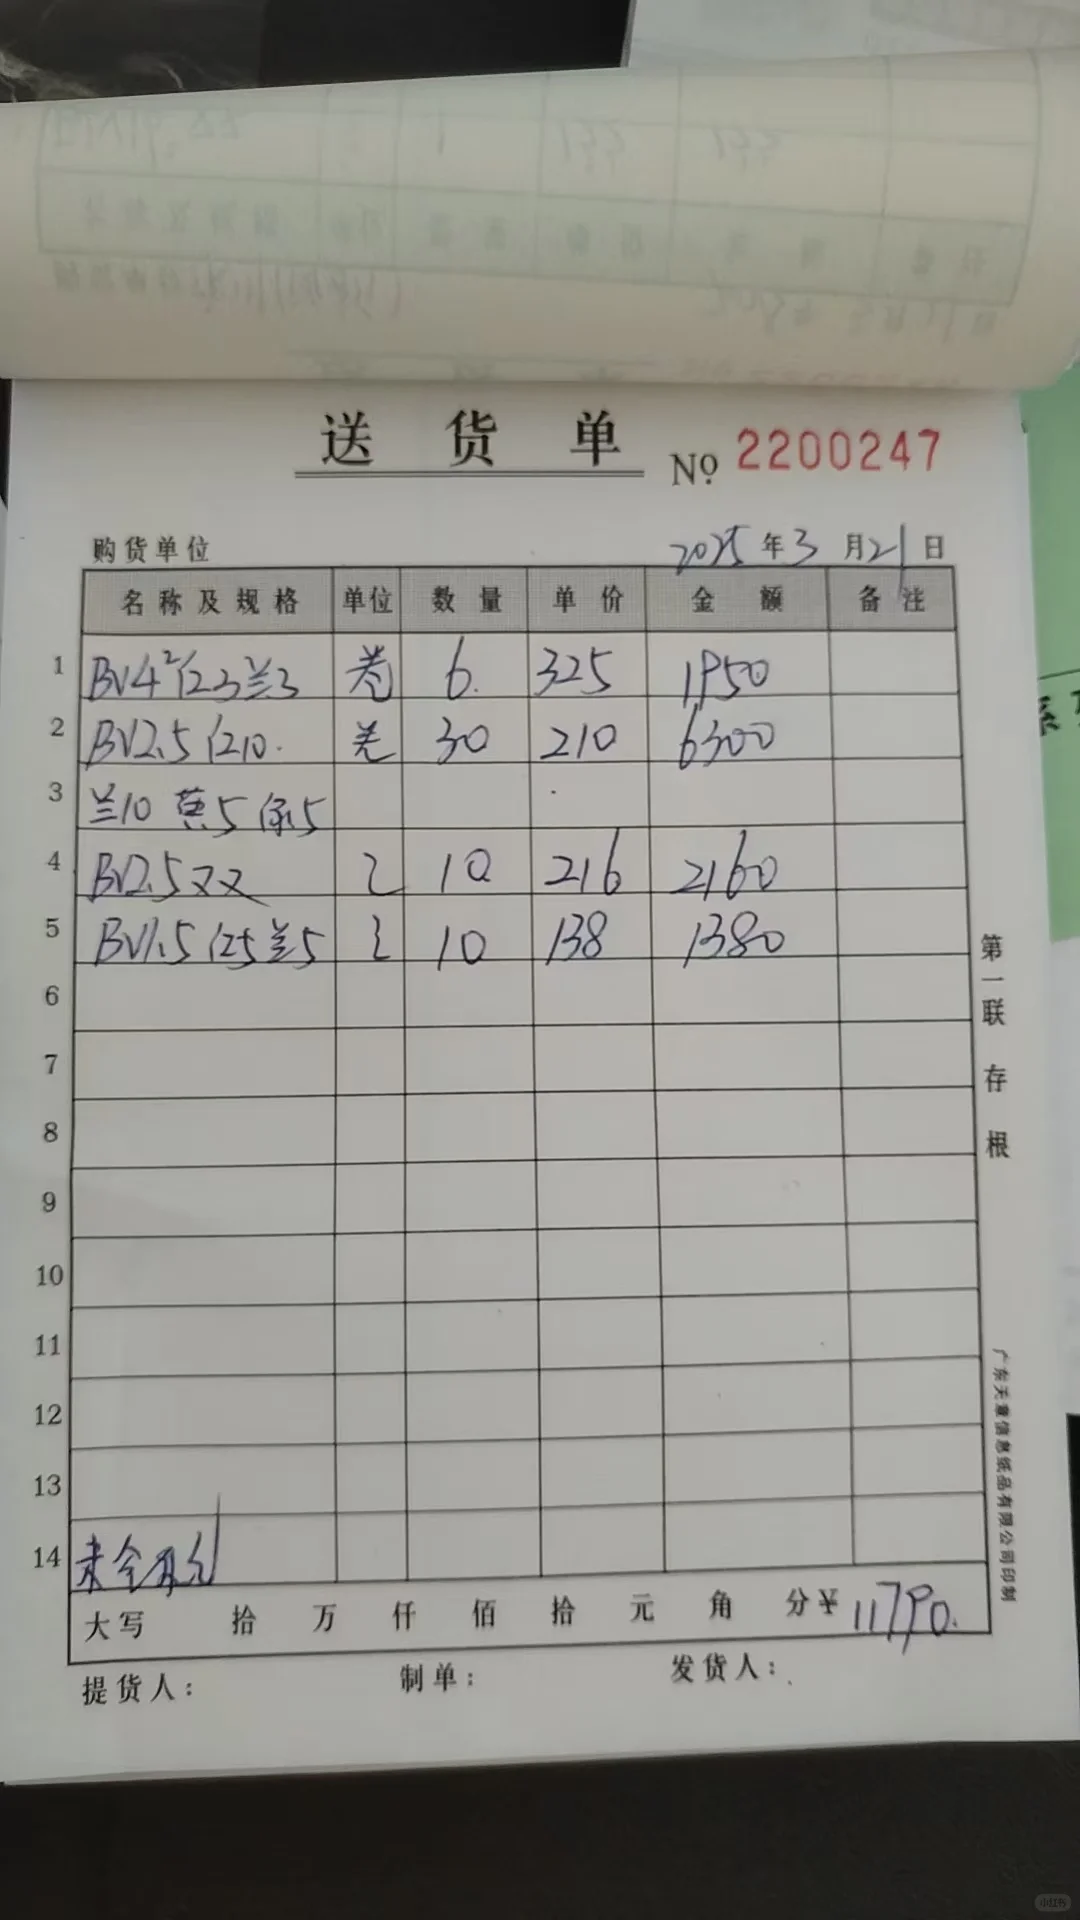 送货单 № 2200247
购货单位 2025年3月21日
名称及规格 单位 数量 单价 金额 备注
1 BV4² 红3兰3 卷 6. 325 1950
2 BV2.5 红10. 卷 30 210 6300
3 兰10 黄5 绿5
4 BV2.5双双 10 216 2160
5 BV1.5 红5兰5 10 138 1380
6
7
8
9
10
11
12
13
14
大写 拾 万 仟 佰 拾 元 角 分¥ 11790.
提货人: 制单: 发货人:
第一联 存根
广东天章信息纸品有限公司印制
小红书